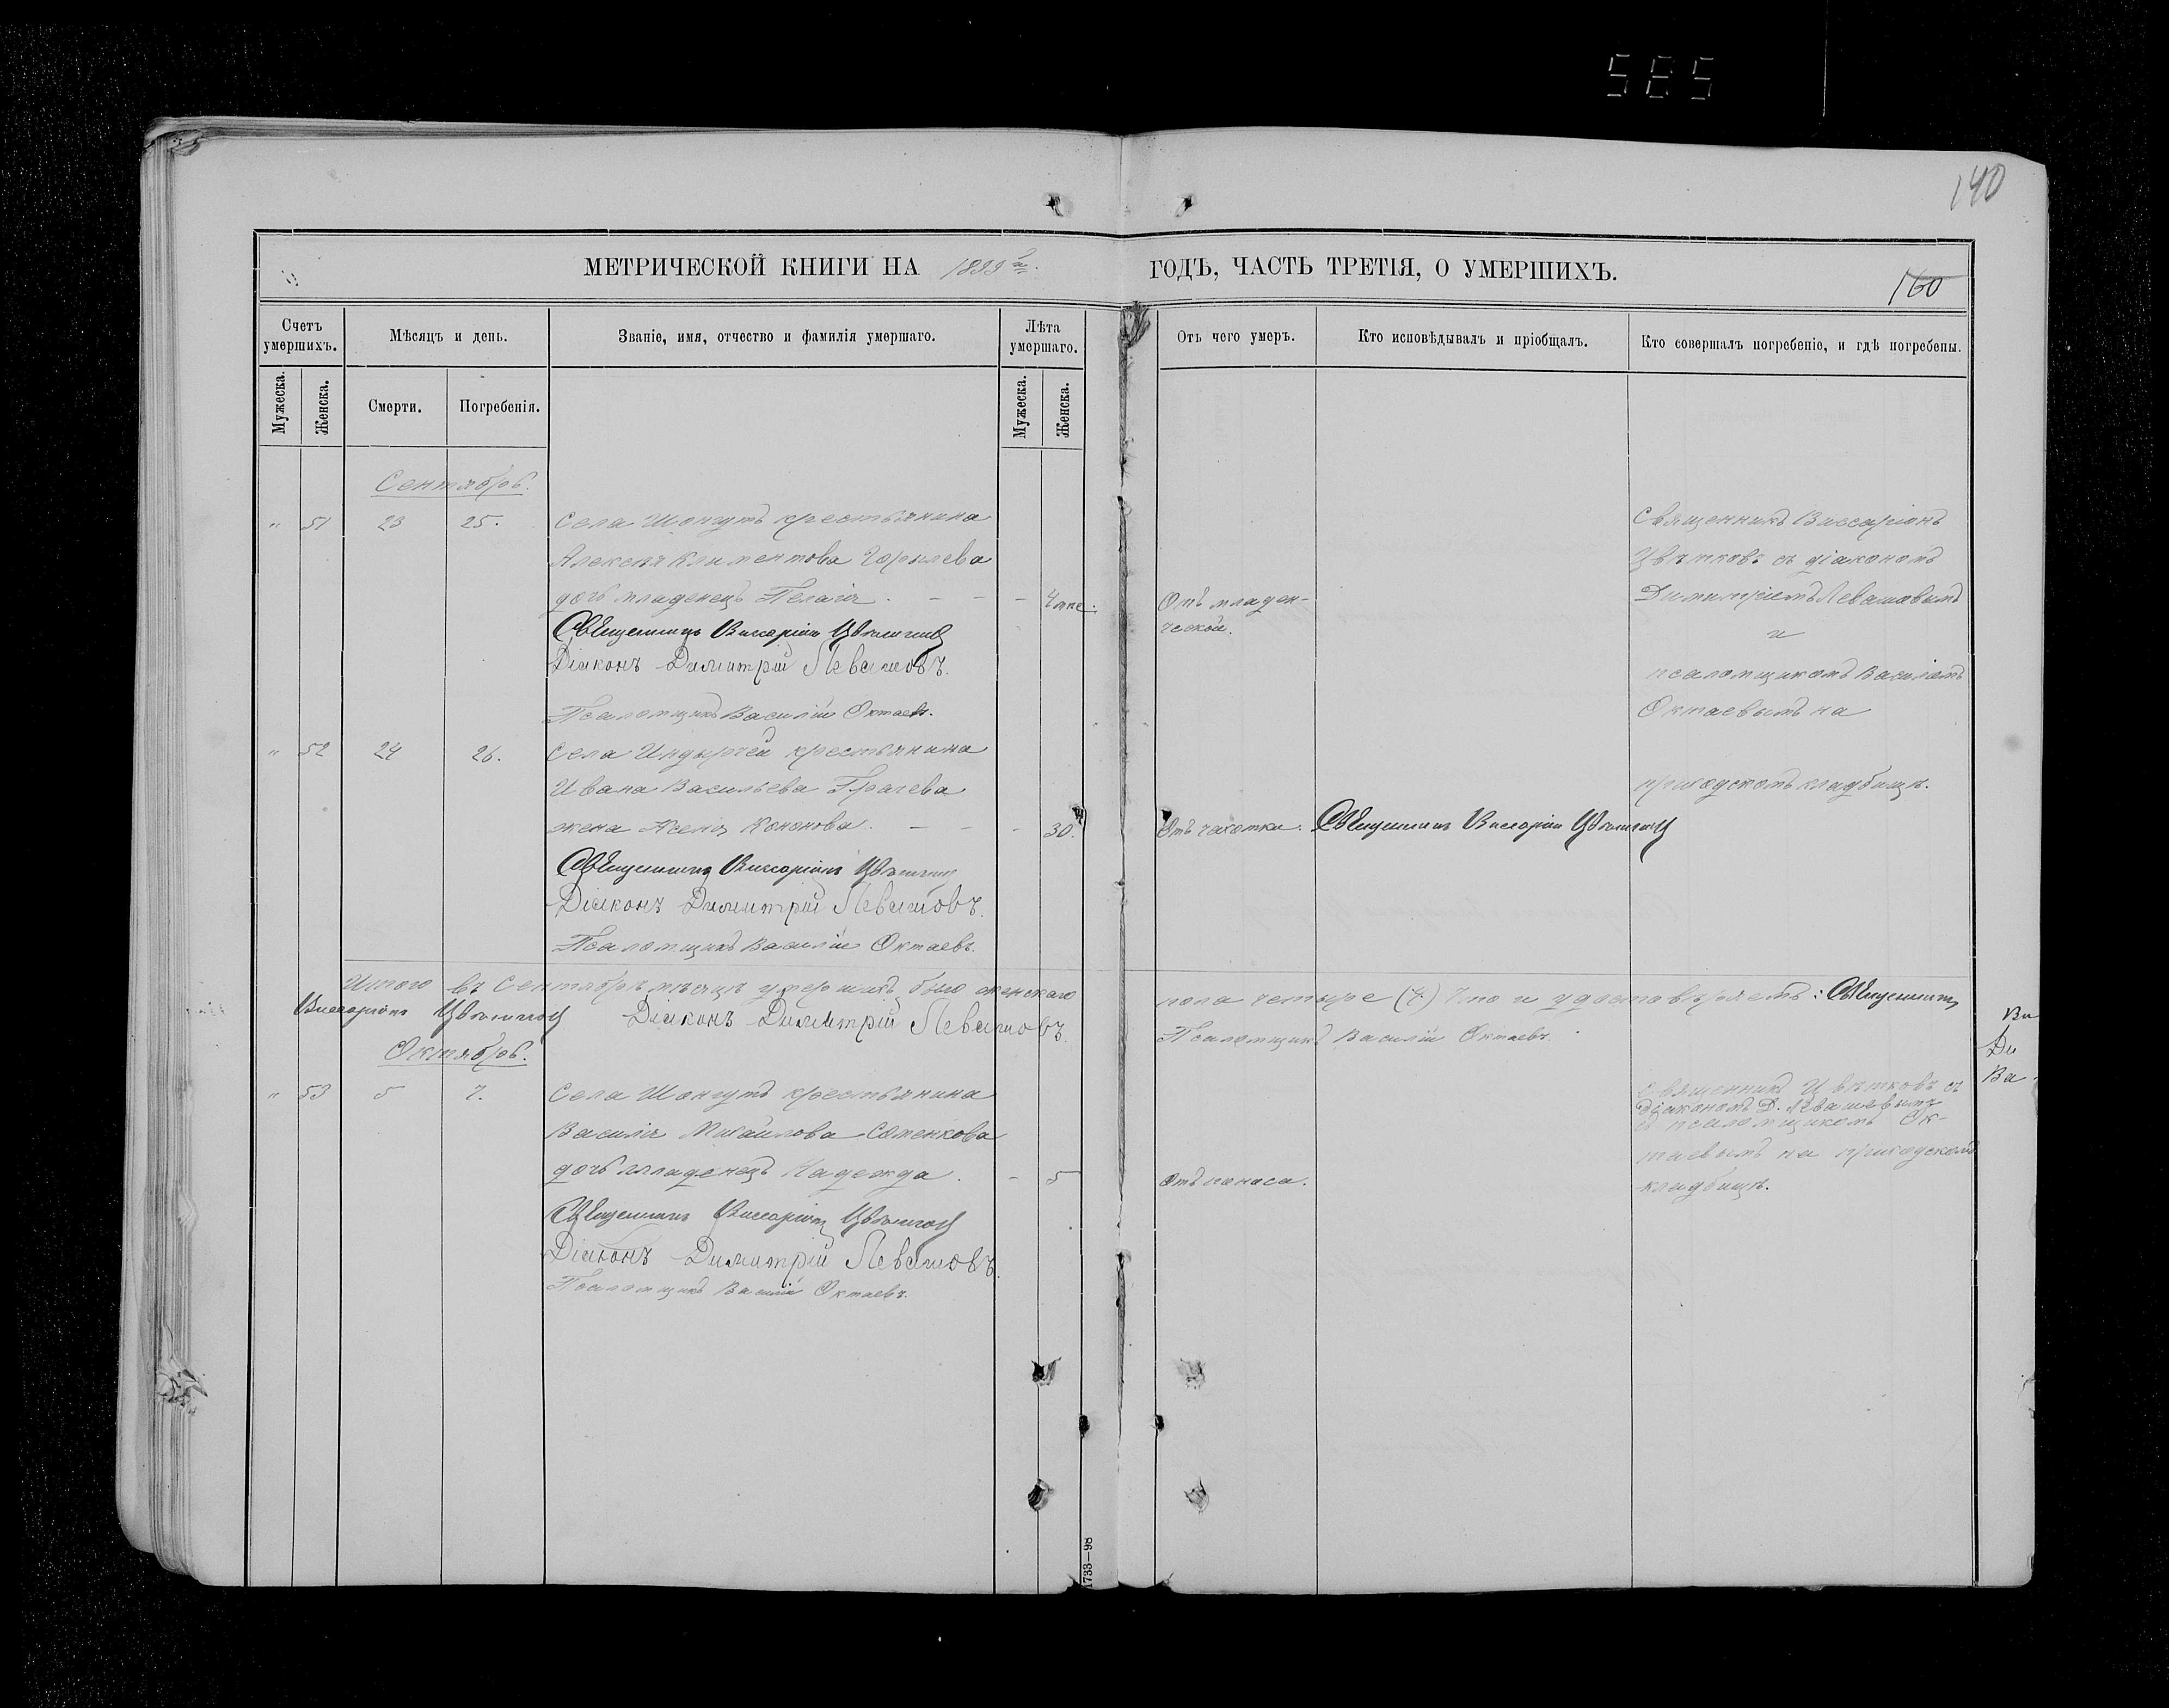 585
140
МЕТРИЧЕСКОЙ КНИГИ НА 1899 й ГОДЪ, ЧАСТЬ ТРЕТІЯ, О УМЕРШИХЪ.
160
Счетъ умершихъ.
Мѣсяцъ и день.
Званіе, имя, отчество и фамилія умершаго.
Лѣта умершаго.
Отъ чего умеръ.
Кто исповѣдывалъ и пріобщалъ.
Кто совершалъ погребеніе, и гдѣ погребены.
Мужеска.
Женска.
Смерти.
Погребенія.
Мужеска.
Женска.
Сентябрь.
" 51 23 25. Села Шонгутъ крестьянина
Алексѣя Климентова
дочь младенецъ Пелагія. - - - 4 мѣс.
Отъ младен-
ческой.
Священникъ Виссаріонъ
Цвѣтковъ съ діакономъ
Димитріемъ Левашовымъ
и
псаломщикомъ Василіемъ
Октаевымъ на
приходскомъ кладбищѣ.
Священникъ Виссаріонъ Цвѣтковъ
Діаконъ Димитрій Левашовъ.
Псаломщикъ Василій Октаевъ.
" 52 24 26. Села Индырчей крестьянина
Ивана Васильева Грачева
жена Ксенія Кононова. - - - 30.
Отъ чахотки. Священникъ Виссаріонъ Цвѣтковъ
Священникъ Виссаріонъ Цвѣтковъ
Діаконъ Димитрій Левашовъ.
Псаломщикъ Василій Октаевъ.
Итого въ Сентябрѣ мѣсяцѣ умершихъ было женскаго пола четыре (4.) Что и удостовѣряемъ: Священникъ
Виссаріонъ Цвѣтковъ Діаконъ Димитрій Левашовъ. Псаломщикъ Василій Октаевъ.
Октябрь.
" 53 5 7. Села Шонгутъ крестьянина
Василія Михайлова Семенкова
дочь младенецъ Надежда. - 5
Отъ поноса.
Священникъ Цвѣтковъ съ
діакономъ Д. Левашовымъ
и псаломщикомъ Ок-
таевымъ на приходскомъ
кладбищѣ.
Священникъ Виссаріонъ Цвѣтковъ
Діаконъ Димитрій Левашовъ.
Псаломщикъ Василій Октаевъ.
Ви
Ди
Ва
1733—98